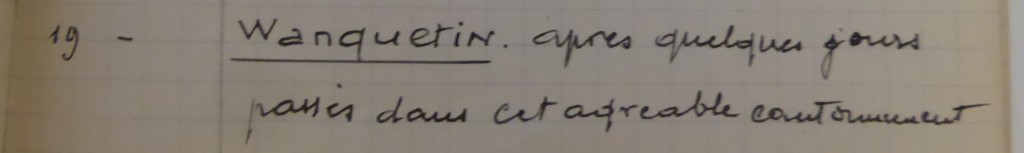 19 - Wanquetin. après quelques jours
passés dans cet agréable cantonnement